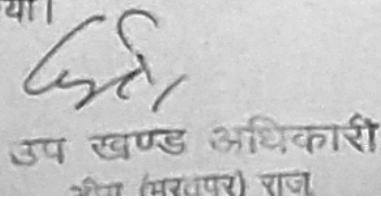 या।
उप खण्ड अधिकारी
(भरतपुर) राज